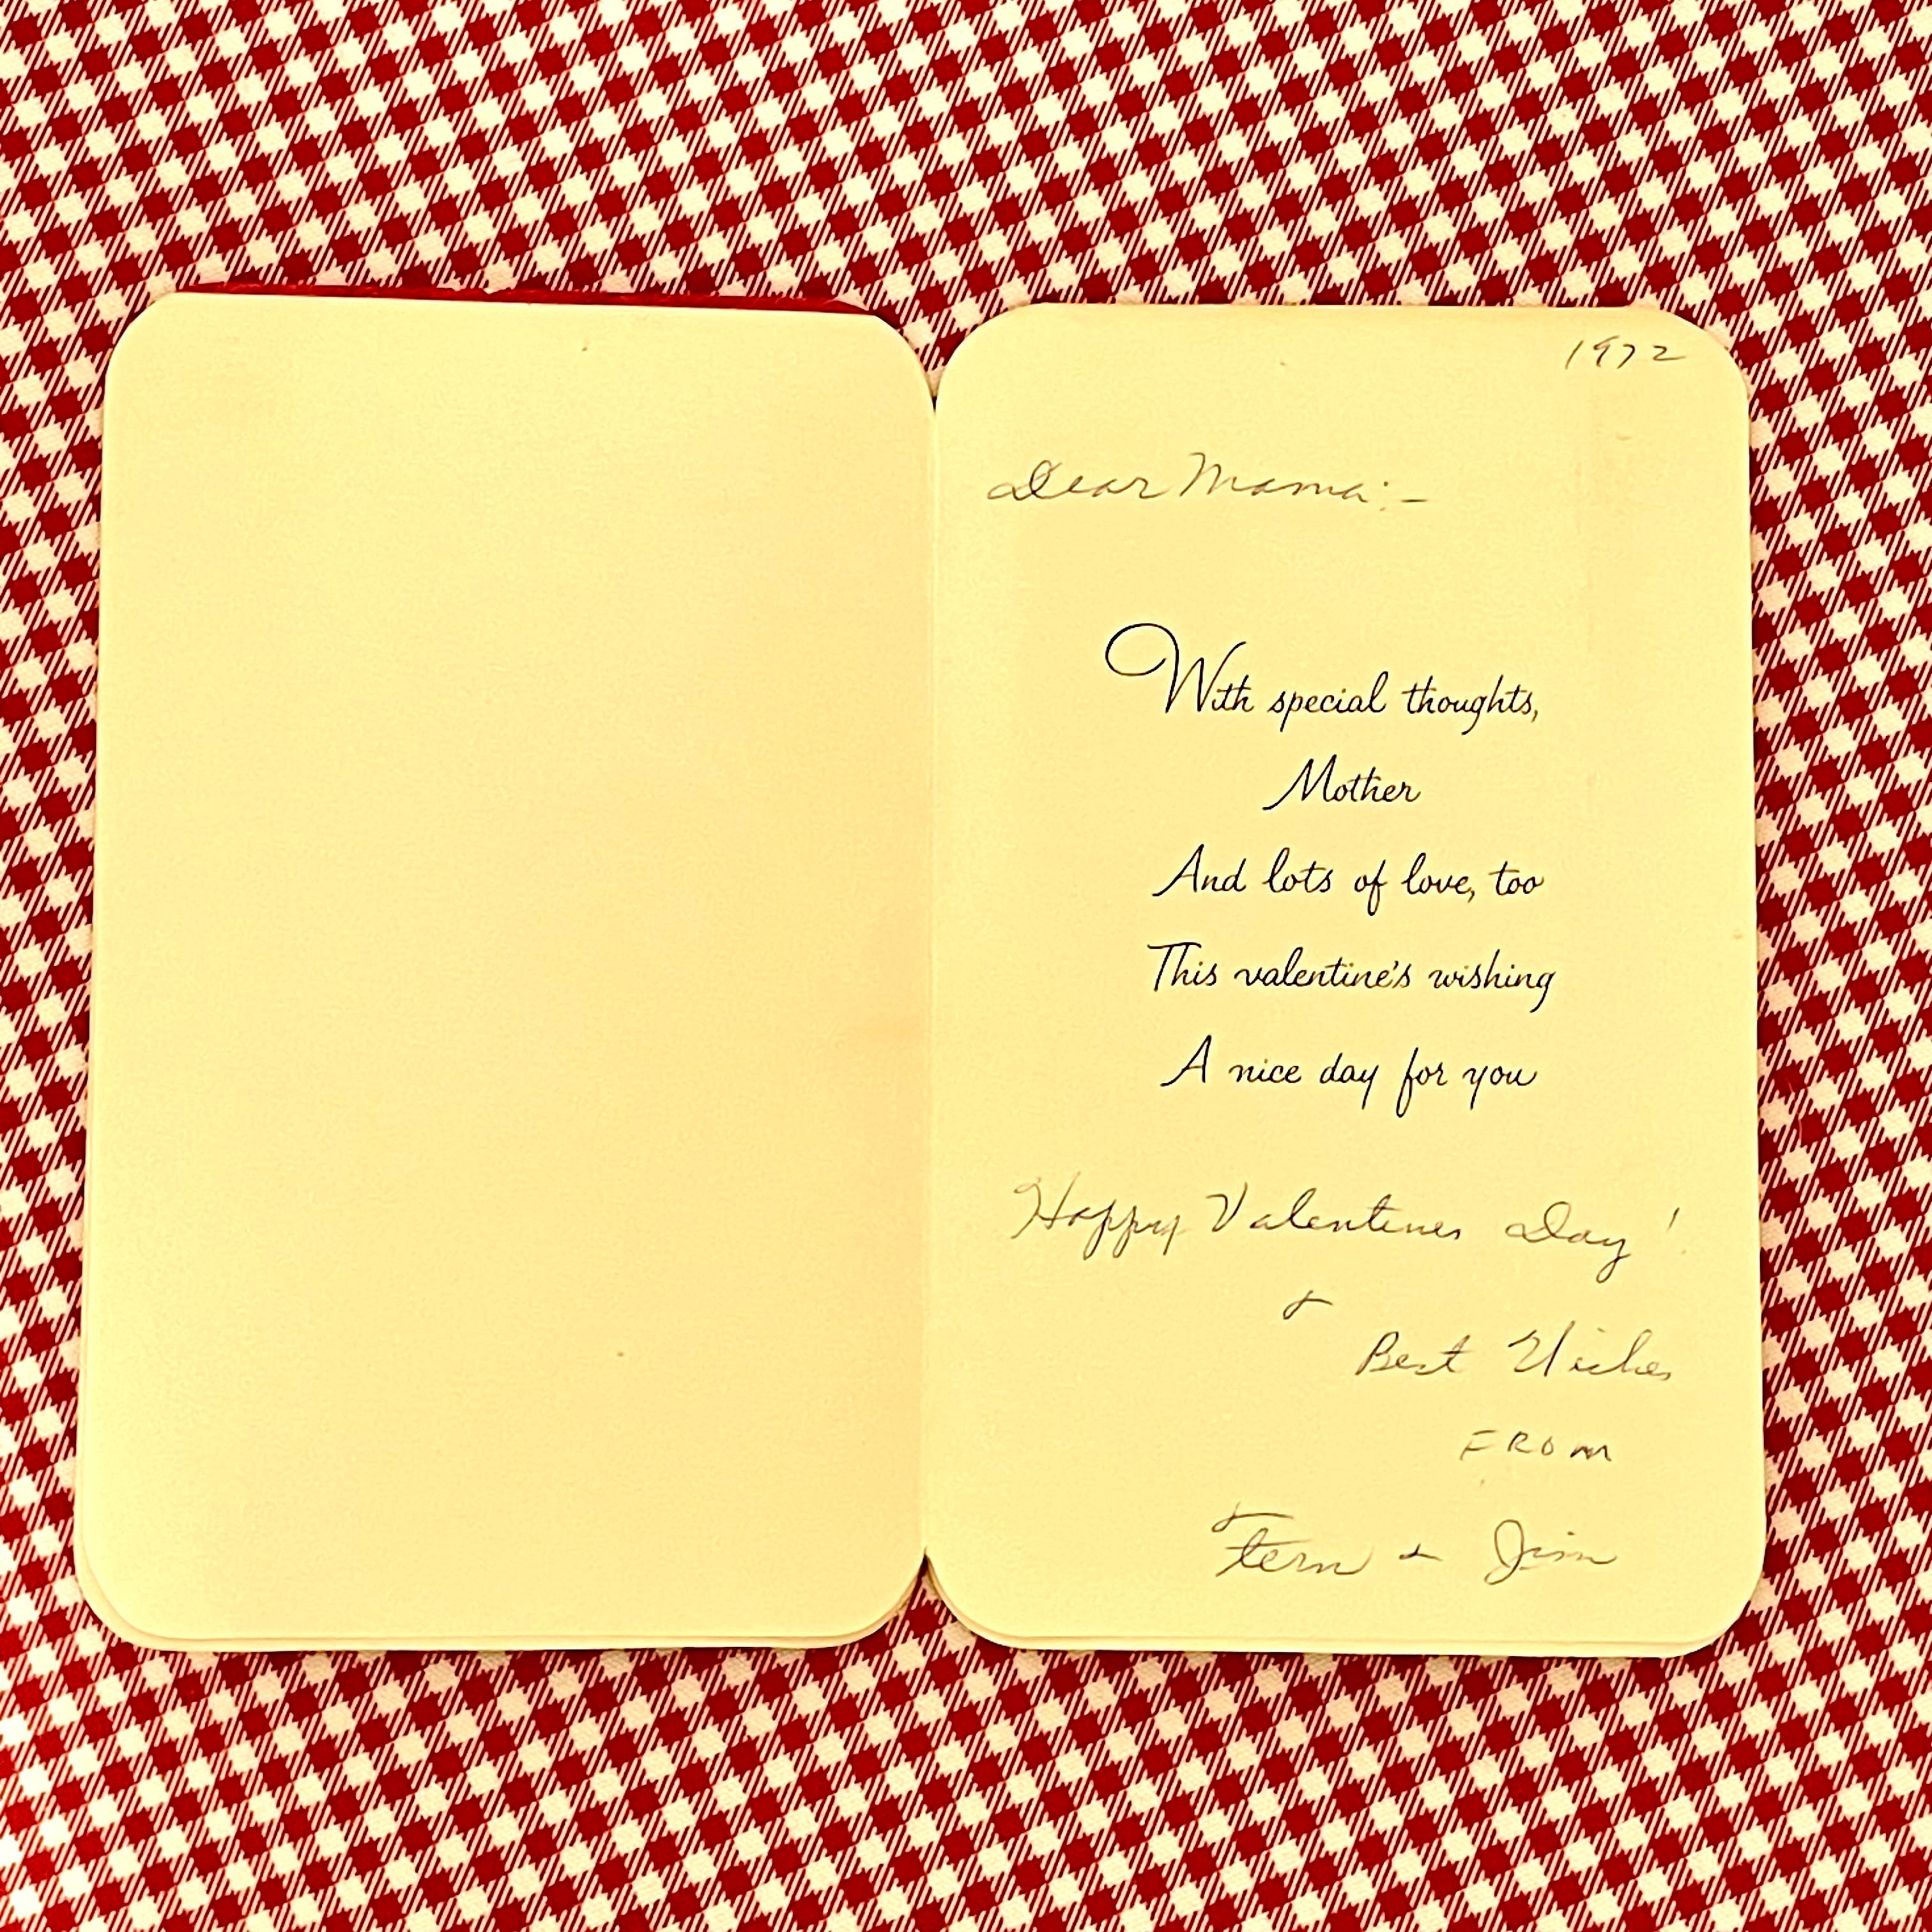 1972
Dear Mama:-
With special thoughts,
Mother
And lots of love, too
This valentine's wishing
A nice day for you
Happy Valentines Day!
&
Best Wishes
FROM
Fern & Jim